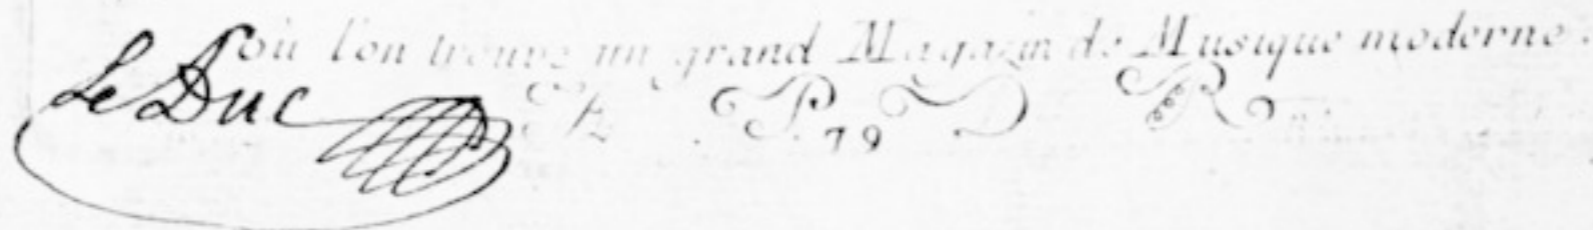 où l'on trouve un grand Magazin de Musique moderne.
Le Duc
A. P. D. R.
79